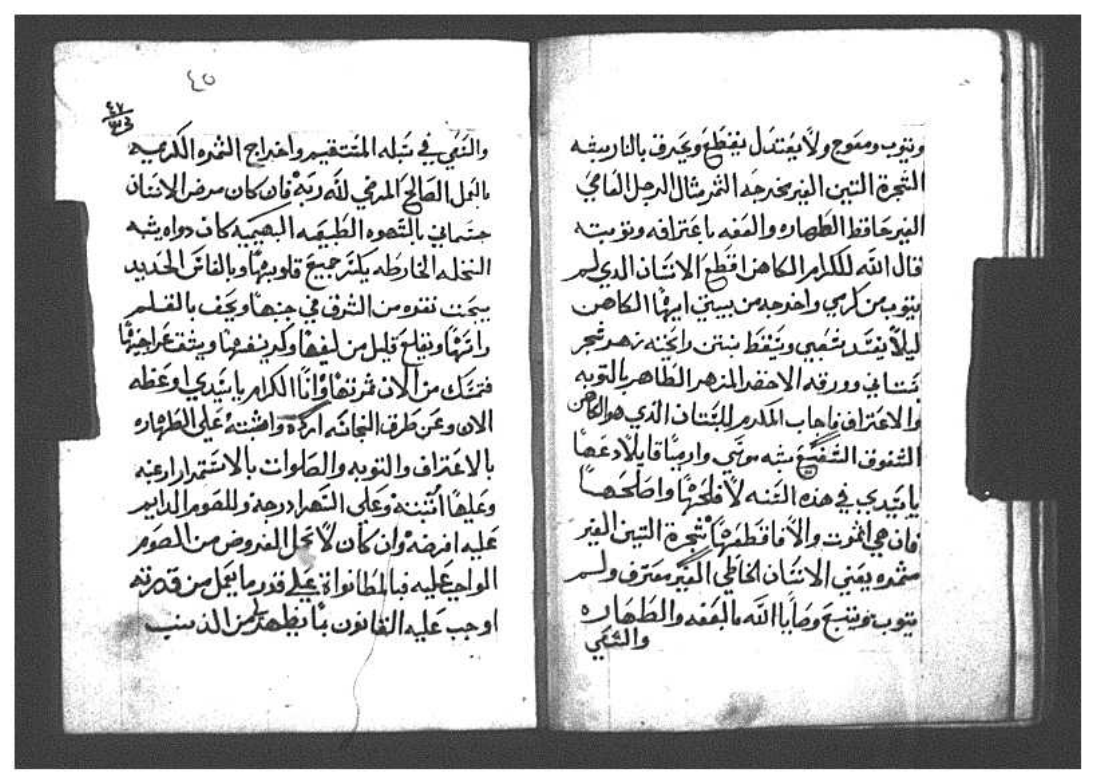 ويتوب ومعوج ولا يعتدل يقطع ويحرق بالنار يشبه
الشجرة التين الغير مخرجه الثمر مثال الرجل العامي
الغير حافظ الطهاره والعفه باعترافه وتوبته
قال الله للكرام الكاهن اقطع الانسان الدي لم
يتوب من كرمي واخرجه من بيتي ايها الكاهن
ليلا يفسد شعبي ويسقط بنتن رايحته زهر شجر
بستاني وورقه الاخضر المزهر الطاهر بالتوبه
والاعتراف فاجاب المكرم للبستان الذي هو الكاهن
الشفوق الشفيع يشبه موسي وارميا قايلا دعها
يا سيدي في هده السنه لافلحها واصلحها
فان هي اثمرت والا فاقطعها شجرة التين الغير
مثمره يعني الانسان الخاطي الغير معترف ولم
يتوب ويتبع وصايا الله بالعفه والطهاره
والسعي
٤٥
٤٧
والسعي في سبله المستقيمه واخراج الثمره الكريمه
بالعمل الصالح المرضي لله ربه فان كان مرض الانسان
جسماني بالشهوه الطبيعيه البهيميه كان دواه يشبه
النخله الخارطه يكسر جميع قلوبها وبالفاس الحديد
من الشرق في جنبها ويجف بالقلم
راسها ويقلع قليل من ليفها وكرنفها
فتمسك من الان ثمرتها وانا الكرام يا سيدي اوعظه
الان وعن طرق النجاسه اركه واثبته علي الطهاره
بالاعتراف والتوبه والصلوات بالاستمرار ارعبه
وعليها اثبته وعلي السهر ادرجه وللصوم الدايم
عليه افرضه وان كان لا يحمل الفروض من الصوم
الواجب عليه فبالمطانواة علي قدر ما يعمل من قدرته
اوجب عليه القانون بما يطهر من الذنب